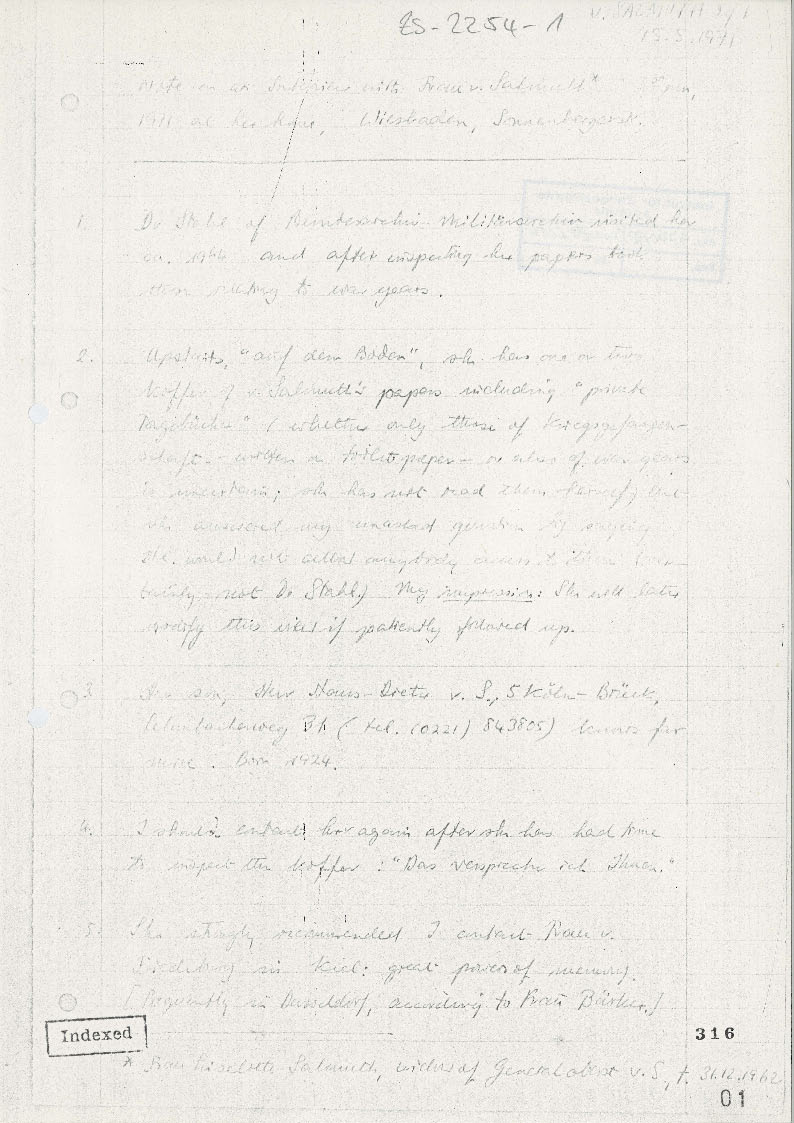 ZS-2254-1
v. SALMUTH
15.5.1971
Note on an Interview with Frau v. Salmuth*
1971 at her home, Wiesbaden, Sonnenbergerstr.
1. Dr Stahl of Bundesarchiv-Militärarchiv visited her
ca. 1964 and after inspecting the papers took
them relating to war years.
2. Upstairs, "auf dem Boden", she has one or two
Koffer of v. Salmuth's papers including "private
Tagebücher" (whether only those of Kriegsgefangen-
schaft - written on toilet paper - or also of war years
is uncertain; she has not read them herself; but
she answered my unasked question by saying
she would not allow anybody access to them (cer-
tainly not Dr Stahl.) My impression: She will later
modify this view if patiently followed up.
3. Her son, Herr Hans-Dieter v. S., 5 Köln-Brück,
(tel. (0221) 843805) knows far
more. Born 1924.
4. I should contact her again after she has had time
to inspect the Koffer: "Das verspreche ich Ihnen."
5. She strongly recommended I contact Frau v.
in Kiel: great powers of memory.
[Frequently in Düsseldorf, according to Frau .]
Indexed
316
* Frau Liselotte Salmuth, widow of Generaloberst v. S, †. 31.12.1962
01